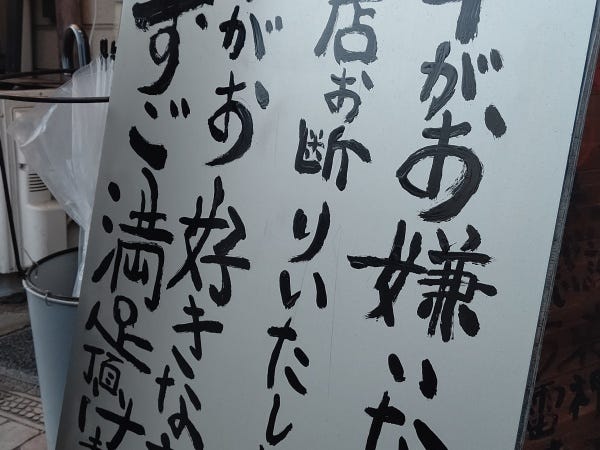 がお嫌いな
店お断りいたし
がお好きな
ずご満足頂け